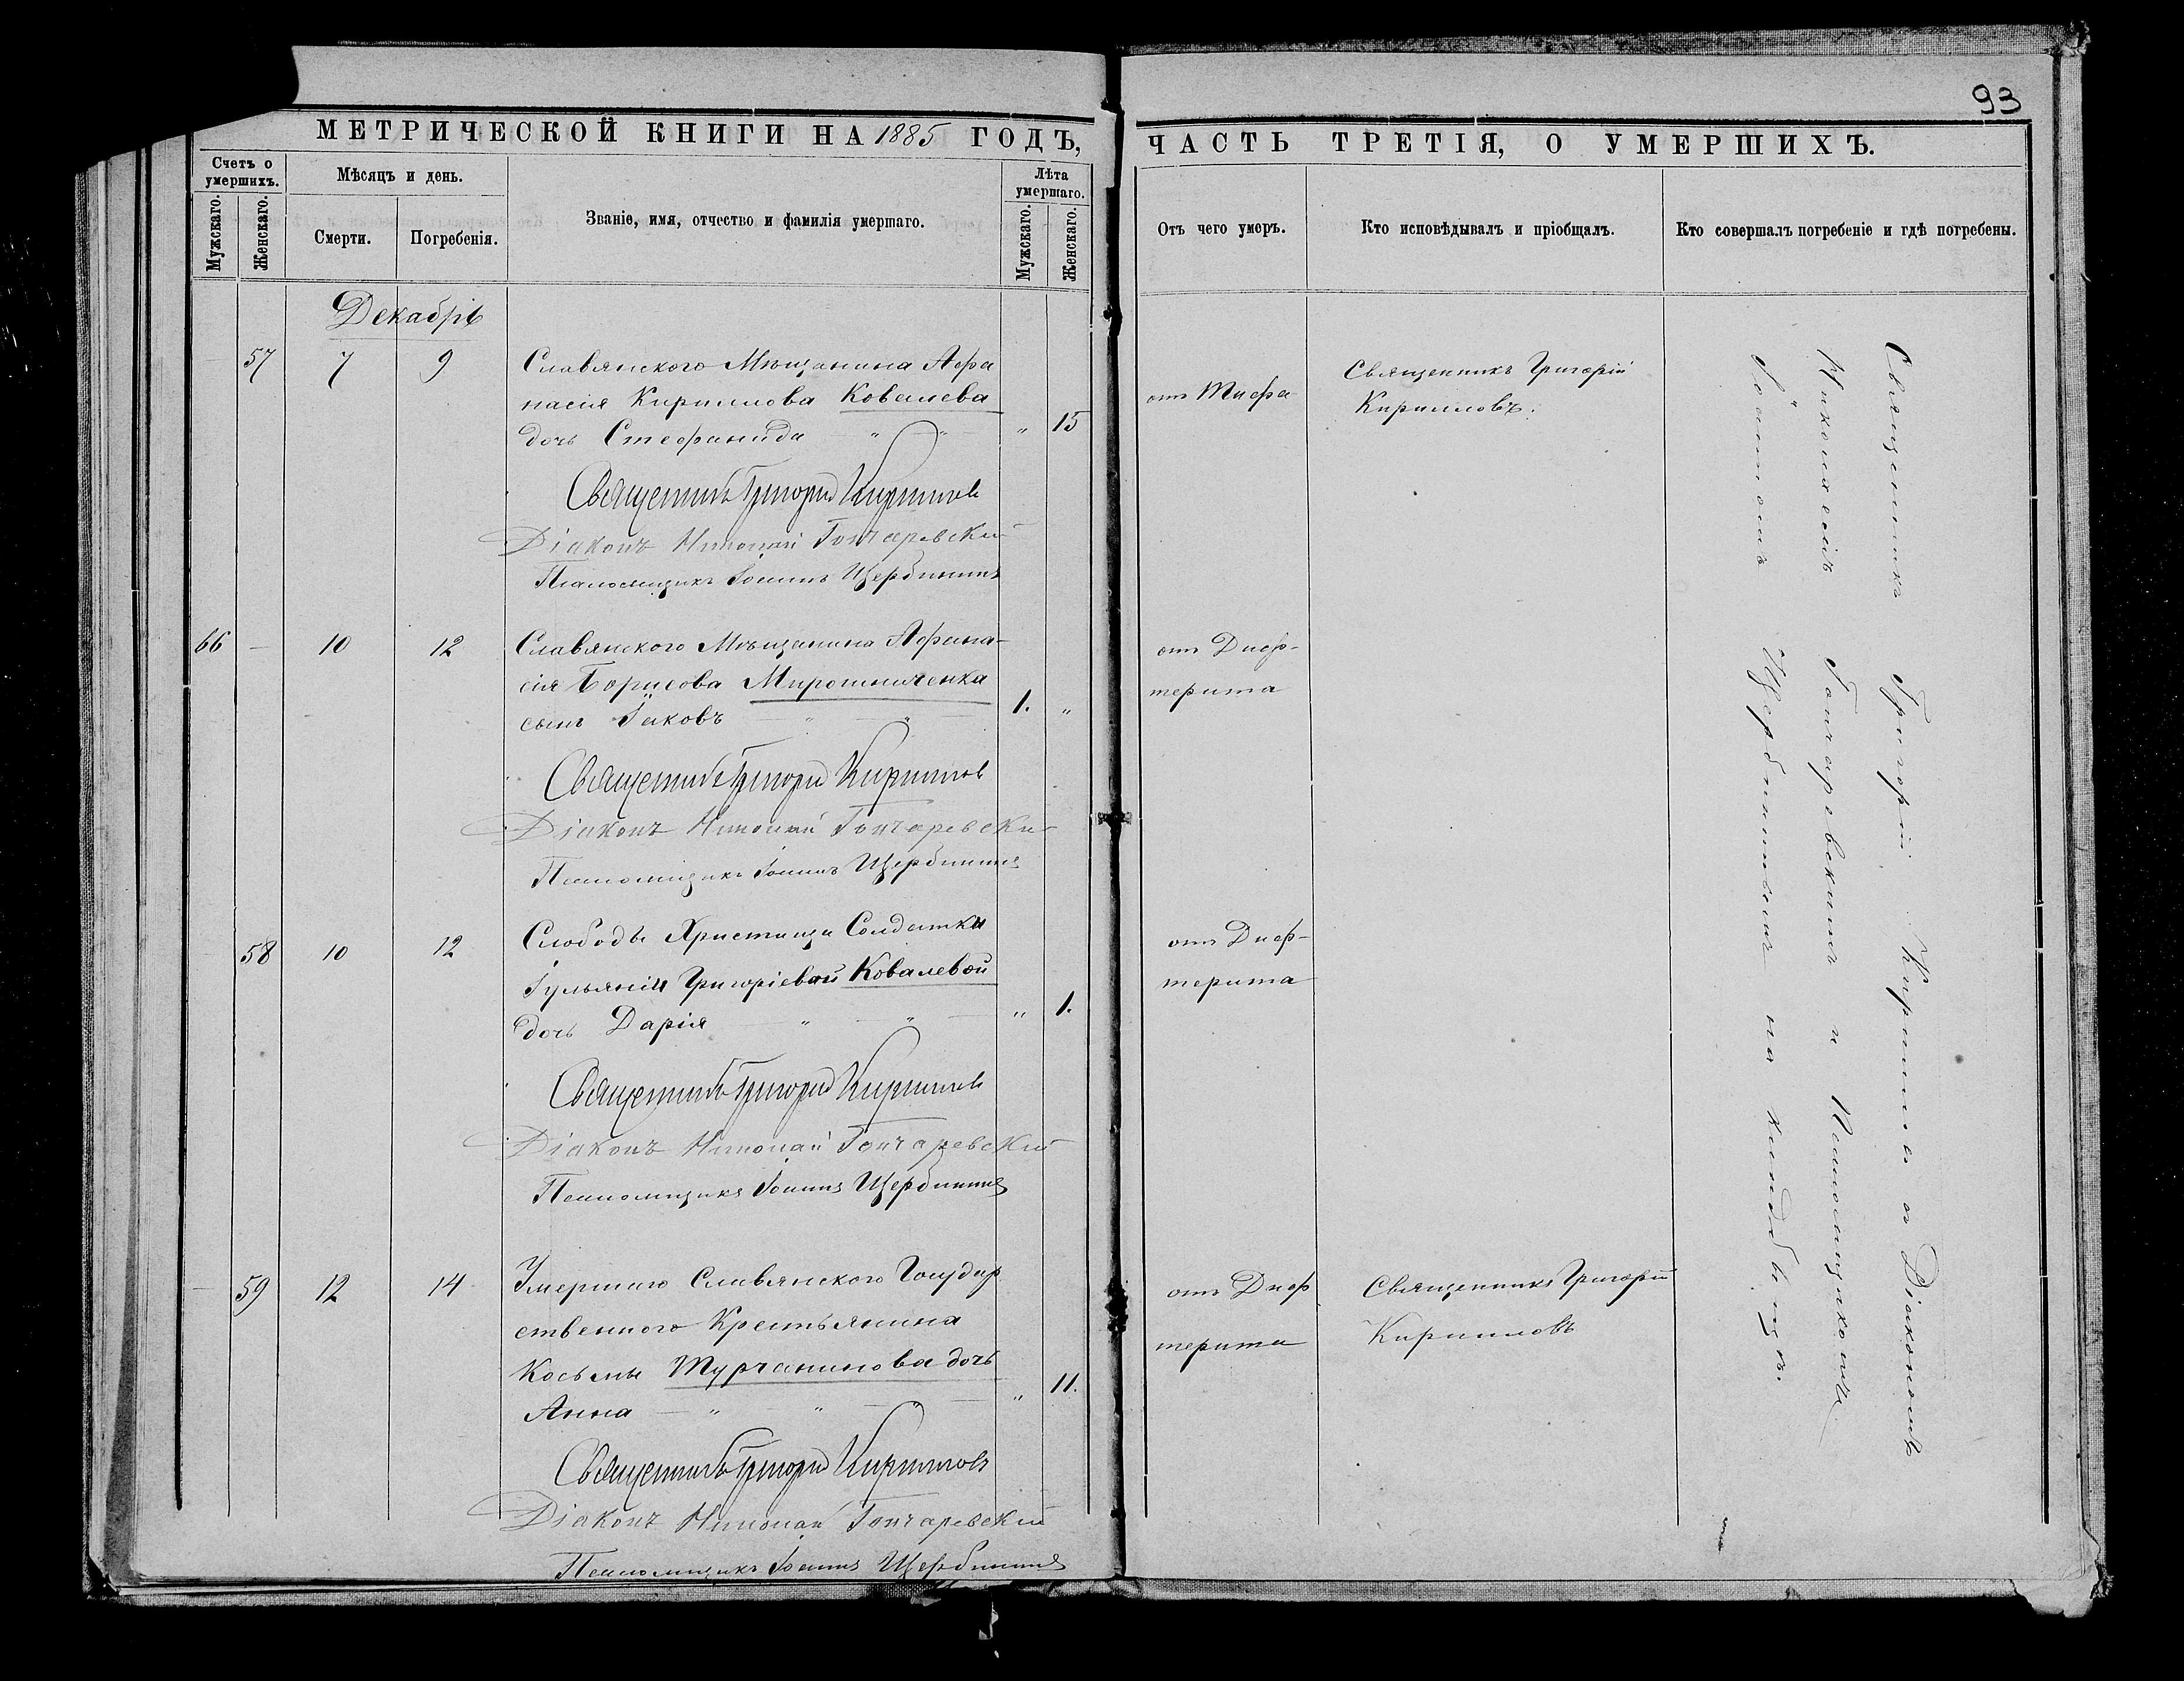 93
МЕТРИЧЕСКОЙ КНИГИ НА 1885 ГОДЪ,
ЧАСТЬ ТРЕТІЯ, О УМЕРШИХЪ.
Счетъ о умершихъ.
Мужскаго.
Женскаго.
Мѣсяцъ и день.
Смерти.
Погребенія.
Званіе, имя, отчество и фамилія умершаго.
Лѣта умершаго.
Мужскаго.
Женскаго.
Отъ чего умеръ.
Кто исповѣдывалъ и пріобщалъ.
Кто совершалъ погребеніе и гдѣ погребены.
Декабрь
57 7 9 Славянского Мѣщанина Афа
насія Кириллова Ковалева
дочь Стефанида " " " 15
отъ Тифа
Священникъ Григорій
Кирилловъ.
Священникъ Григорій Кирилловъ
Діаконъ Николай Гончаревскій
Псаломщикъ Іоаннъ Щербининъ
66 — 10 12 Славянского Мѣщанина Афана-
сія Борисова Мирошниченка
сынъ Іаковъ — " — " 1. "
отъ Диф-
терита
Священникъ Григорій Кирилловъ
Діаконъ Николай Гончаревскій
Псаломщикъ Іоаннъ Щербининъ
58 10 12 Слободы Христищи Солдатки
Іульяніи Григоріевой Ковалевой
дочь Дарія — " — " — " 1.
отъ Диф-
терита
Священникъ Григорій Кирилловъ
Діаконъ Николай Гончаревскій
Псаломщикъ Іоаннъ Щербининъ
59 12 14 Умершаго Славянского Государ
ственного Крестьянина
Косьмы Турчанинова дочь
Анна — " " — " — " 11.
отъ Диф
терита
Священникъ Григорій
Кирилловъ
Священникъ Григорій Кирилловъ
Діаконъ Николай Гончаревскій
Псаломщикъ Іоаннъ Щербининъ
Священникъ Григорій Кирилловъ съ Діакономъ
Николаемъ Гончаревскимъ и Псаломщикомъ
Іоанномъ Щербининымъ на кладбищѣ.